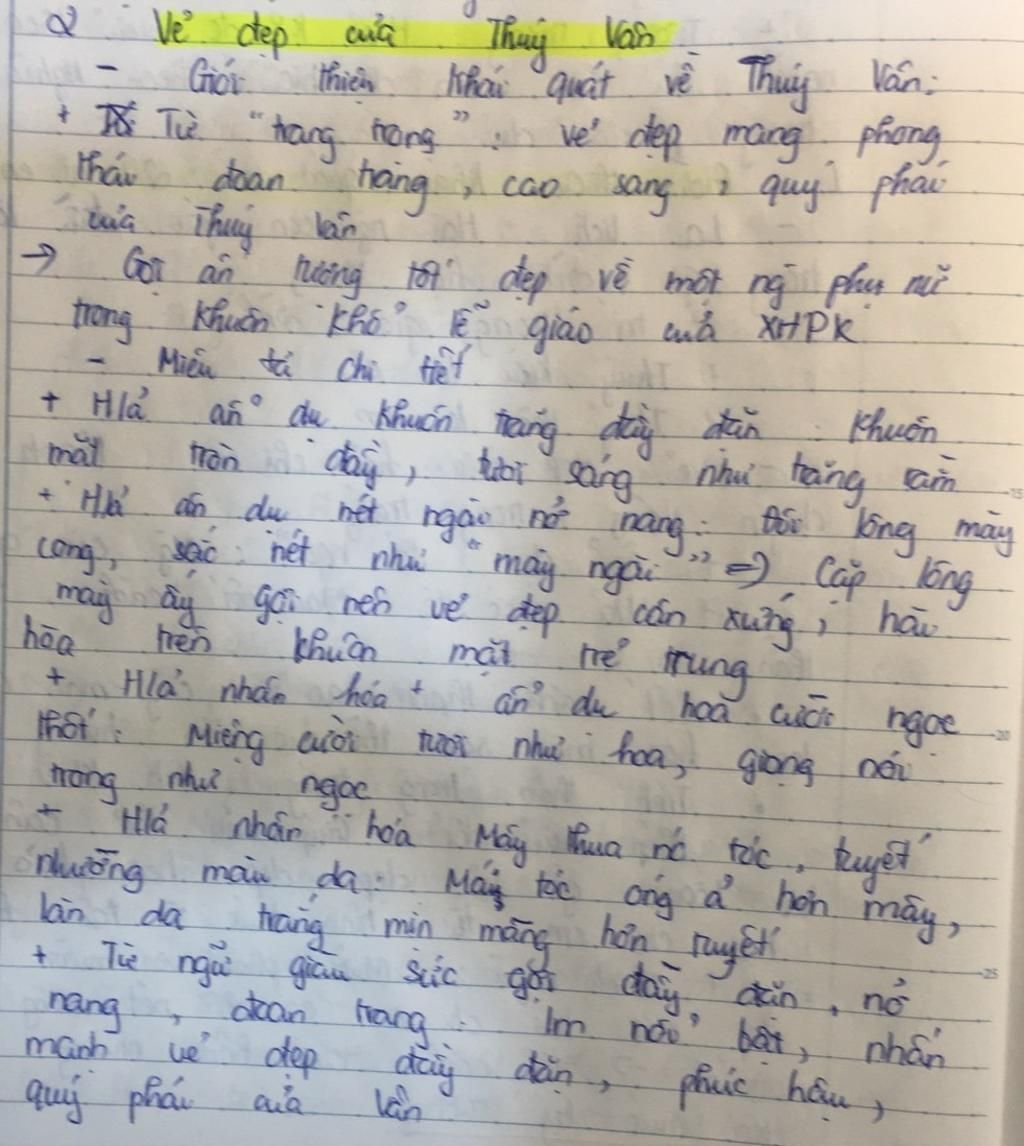 2 Vẻ đẹp của Thuý Vân
- Giới thiệu khái quát về Thuý Vân:
+ Từ "trang trọng": vẻ đẹp mang phong
thái đoan trang, cao sang, quý phái
của Thuý Vân
→ Gợi ấn tượng tốt đẹp về một ng phụ nữ
trong khuôn khổ lễ giáo của XHPK
- Miêu tả chi tiết
+ H/ả ẩn dụ khuôn trăng đầy đặn: Khuôn
mặt tròn đầy, tươi sáng như trăng rằm
+ H/ả ẩn dụ nét ngài nở nang: Đôi lông mày
cong, sắc nét như "mày ngài" => Cặp lông
mày ấy gợi nên vẻ đẹp cân xứng, hài
hòa trên khuôn mặt trẻ trung
+ H/ả nhân hóa + ẩn dụ hoa cười ngọc
thốt: Miệng cười tươi như hoa, giọng nói
trong như ngọc
+ H/ả nhân hóa Mây thua nc tóc, tuyết
nhường màu da: Mái tóc óng ả hơn mây,
làn da trắng mịn màng hơn tuyết
+ Từ ngữ giàu sức gợi đầy đặn, nở
nang, đoan trang: làm nổi bật, nhấn
mạnh vẻ đẹp đầy đặn, phúc hậu,
quý phái của Vân